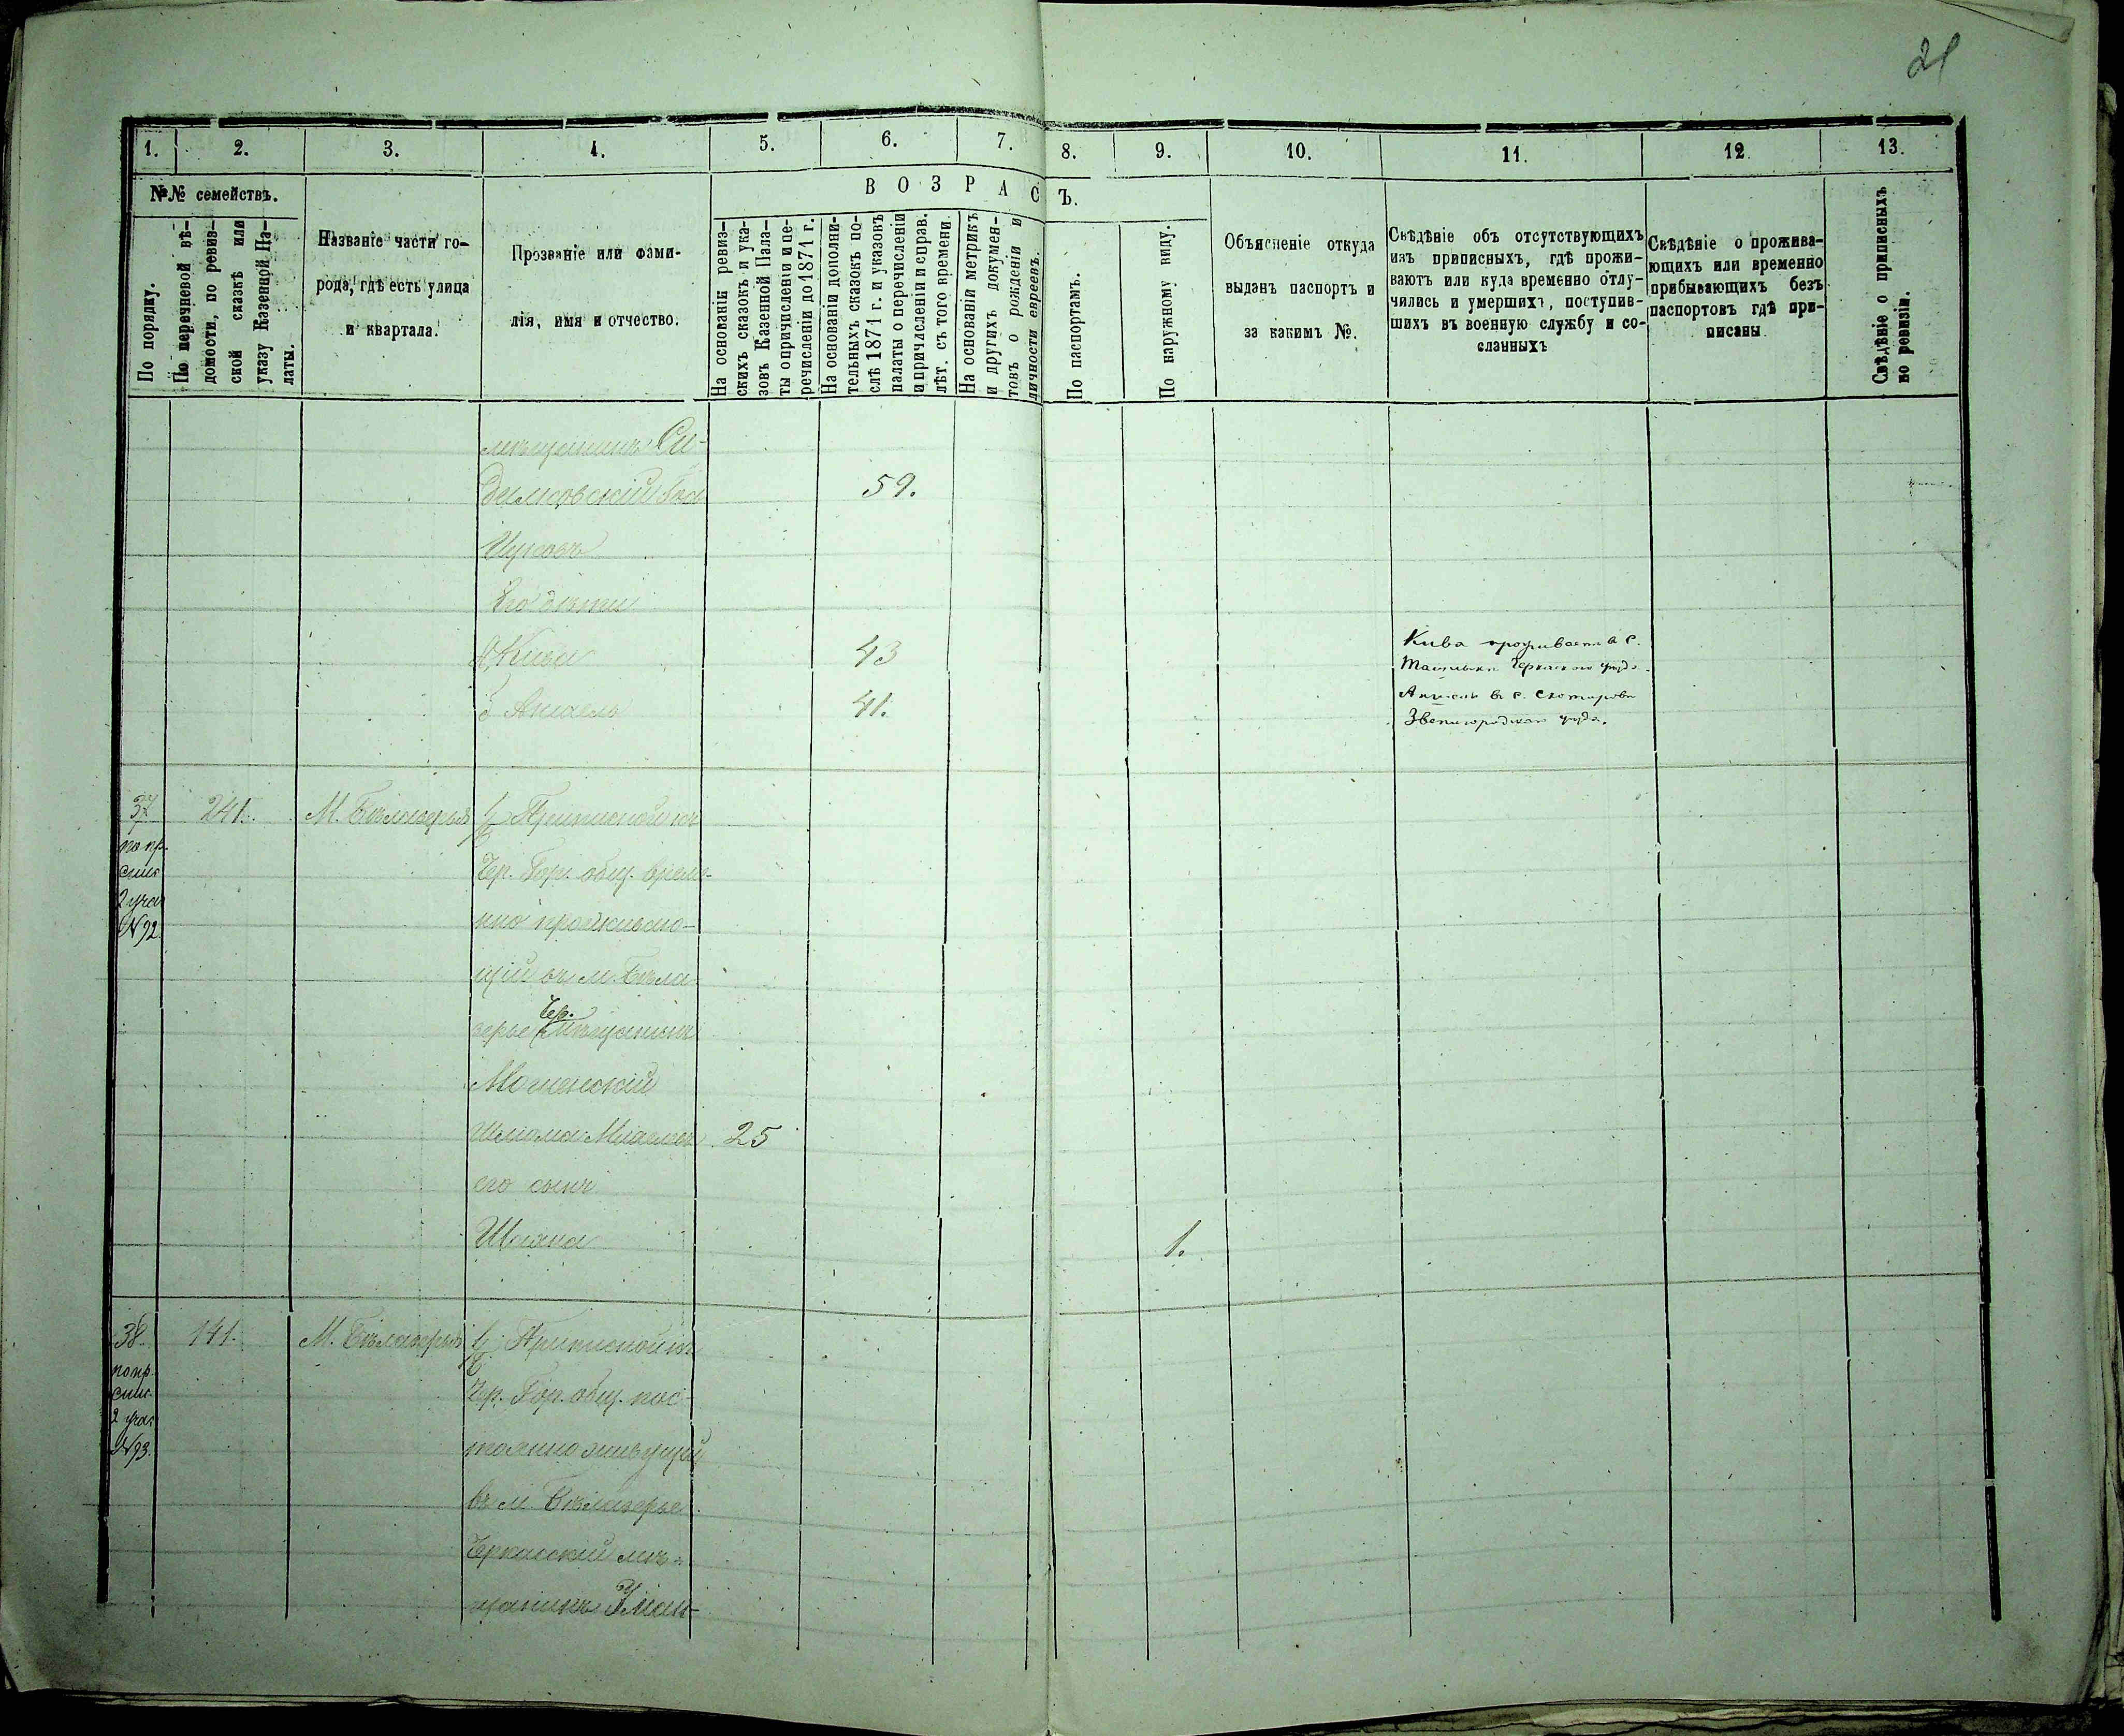 21
1. 2. 3. 4. 5. 6. 7. 8. 9. 10. 11. 12. 13.
№№ семействъ.
По порядку.
По перечневой вѣ-
домости, по ревиз-
ской сказкѣ или
указу Казенной Па-
латы.
Названіе части го-
рода, гдѣ есть улица
и квартала.
Прозваніе или фами-
лія, имя и отчество.
ВОЗРАСЪ.
На основаніи ревиз-
скихъ сказокъ и ука-
зовъ Казенной Пала-
ты о причисленіи и пе-
речисленіи до 1871 г.
На основаніи дополни-
тельныхъ сказокъ по-
слѣ 1871 г. и указовъ
палаты о перечисленіи
и причисленіи и справ.
лѣт. съ того времени.
На основаніи метрикъ
и другихъ докумен-
товъ о рожденіи и
личности евреевъ.
По паспортамъ.
По наружному виду.
Объясненіе откуда
выданъ паспортъ и
за какимъ №.
Свѣдѣніе объ отсутствующихъ
изъ приписныхъ, гдѣ прожи-
ваютъ или куда временно отлу-
чились и умершихъ, поступив-
шихъ въ военную службу и со-
сланныхъ
Свѣдѣніе о прожива-
ющихъ или временно
прибывающихъ безъ
паспортовъ гдѣ при-
писаны
Свѣдѣніе о приписныхъ
по ревизіи.
мѣщанинъ Си-
59.
Его дѣти
Кива 43
Кива проживаетъ в с.
Ташлыки Черкаскаго уѣзда.
41.
Звенигородскаго уѣзда.
37 241. М. Бѣлозерье Приписной къ
по пр.
спис
2 учас
№ 92.
Чер. Гор. общ. време-
нно проживаю-
щій въ м. Бѣло-
Чер.
зерье мѣщанинъ
Мошенскій
Шліома 25
его сынъ
1.
38 141. М. Бѣлозерье Приписной къ
по пр.
спис
2 учас
№ 93.
Чер. Гор. общ. пос-
тоянно живущій
въ м. Бѣлозерье
Черкасскій мѣ-
щанинъ Уман-